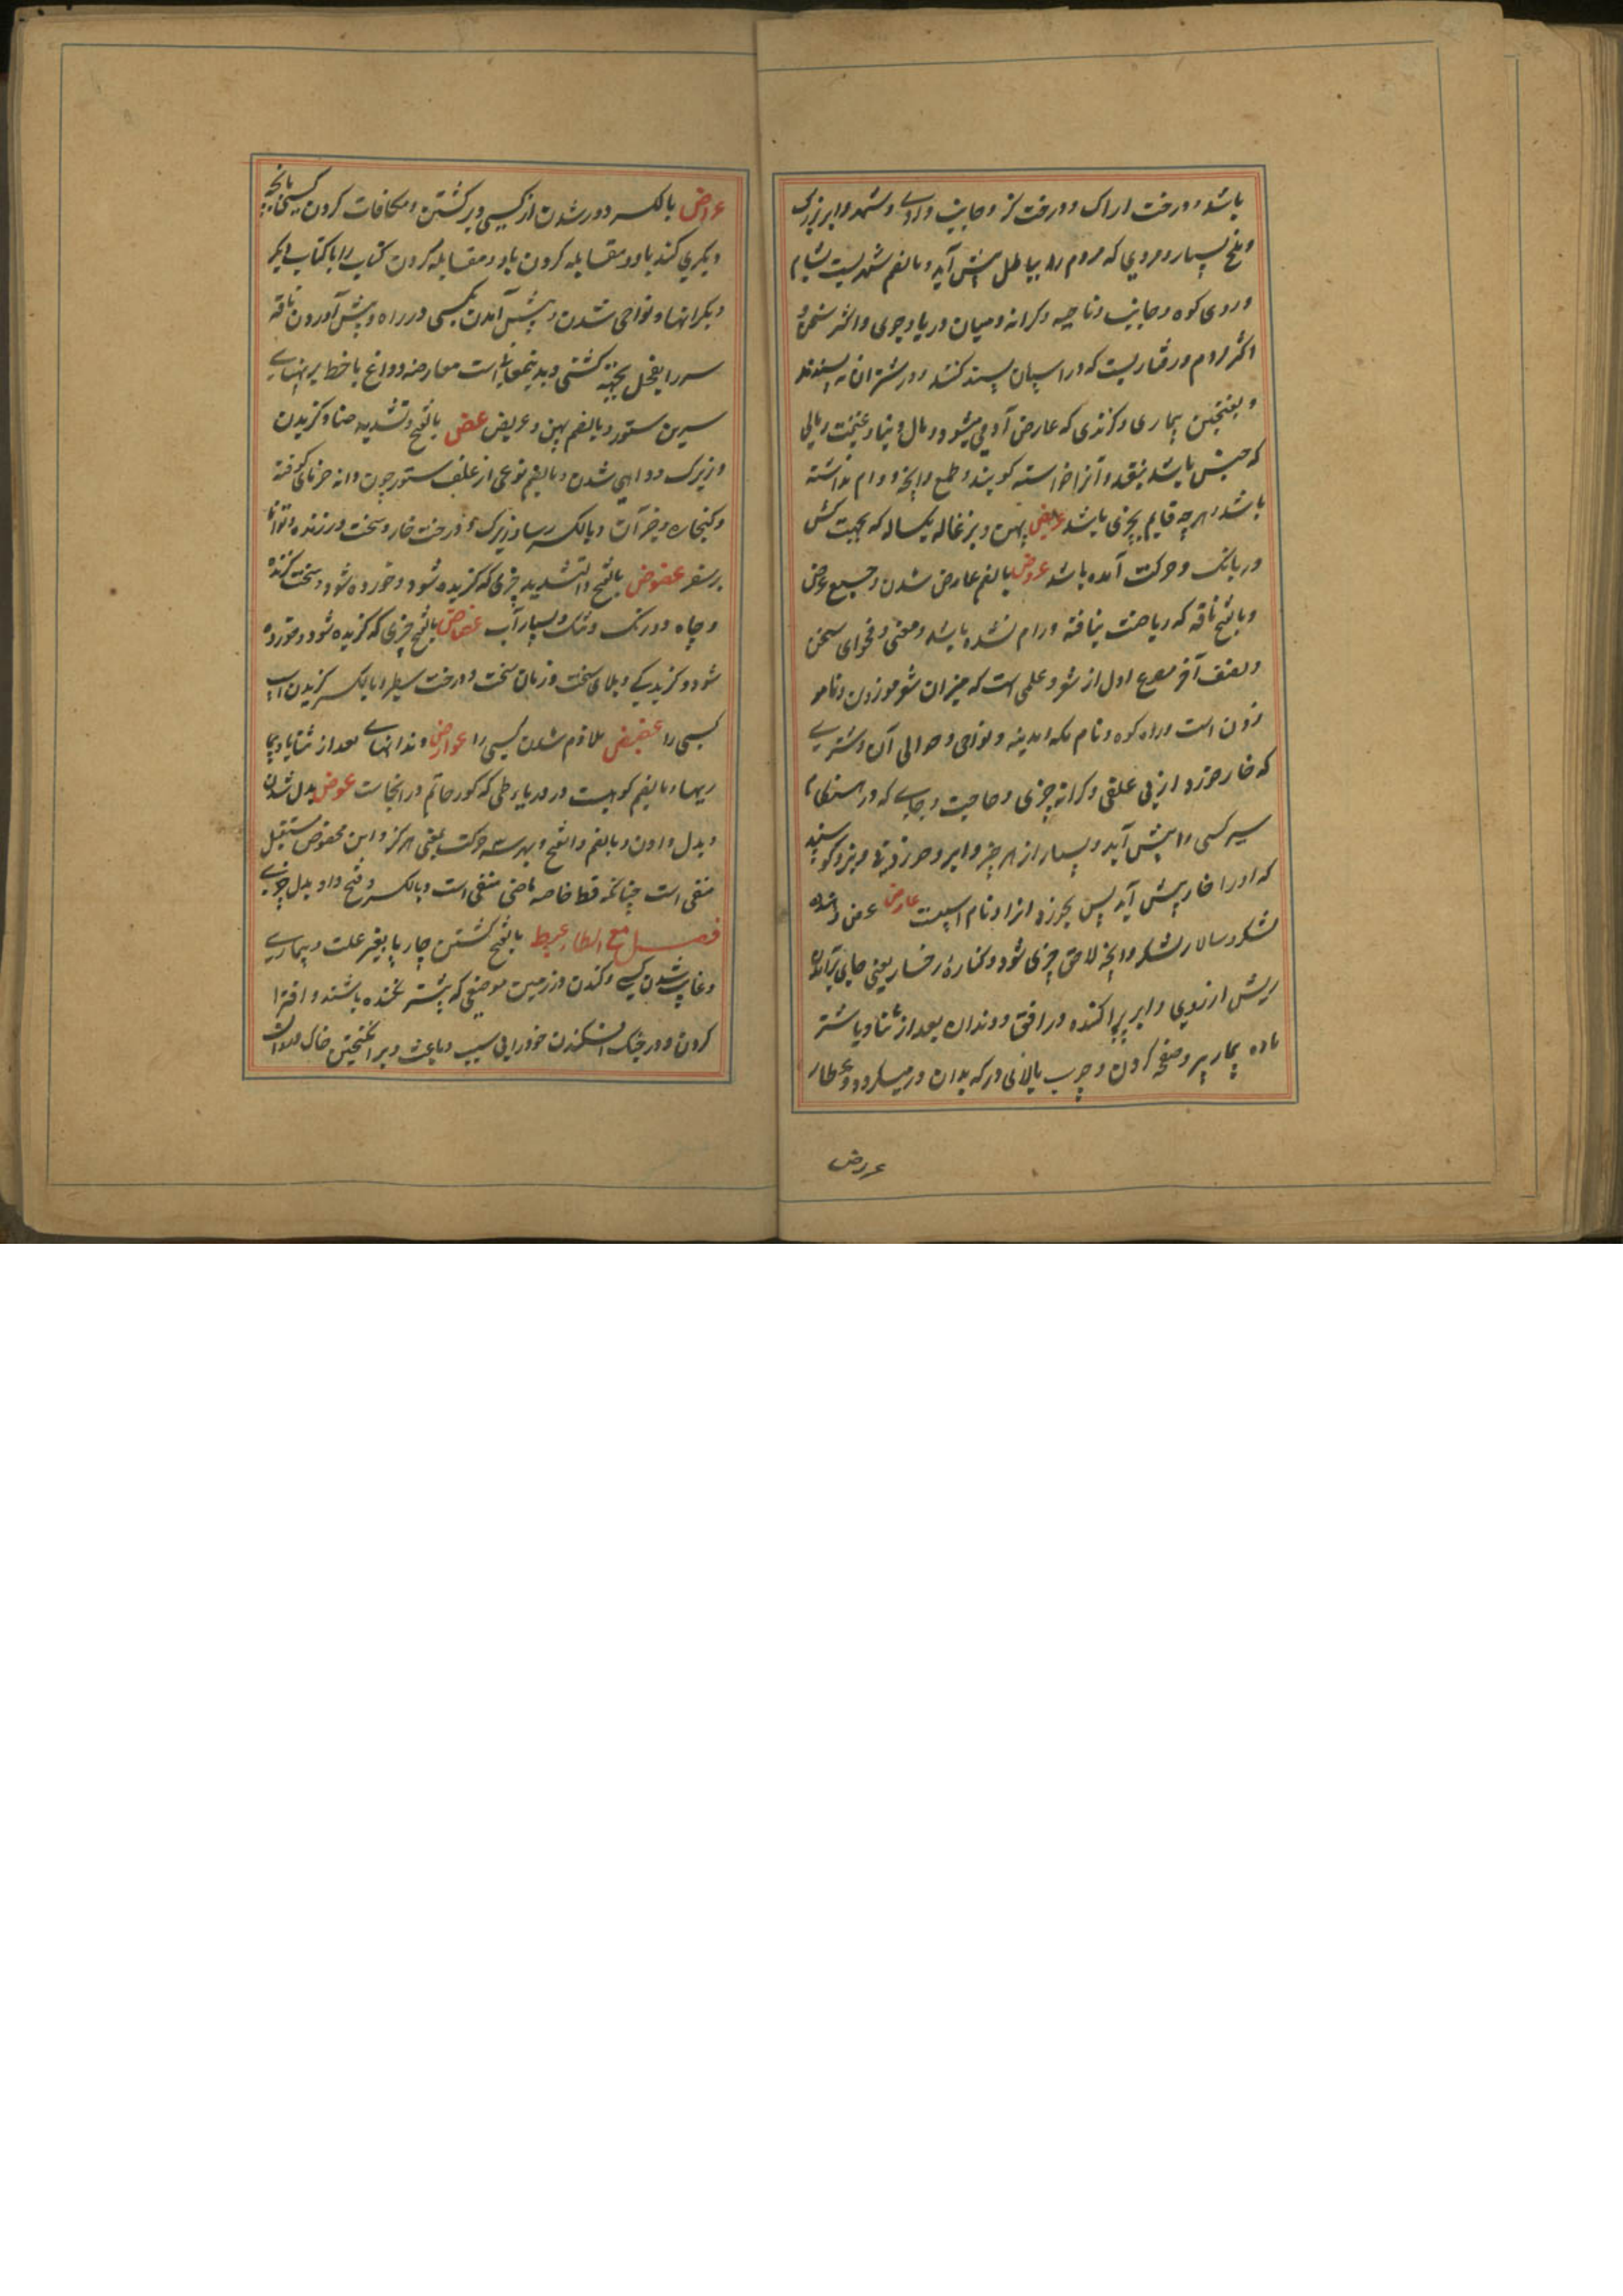 باشد و درخت اراک و درخت کز و جانب وادی و شهد و ابر بزرک
و ملخ بسیار و مردی که مردم را بباطل پیش آید و بالضم شهریست بشام
و روی کوه و جانب و ناحیه و کرانه و میان دریا و جوی و اکثر سخن و
اکثر مردم و رفتاریست که در اسپان پسند کنند و در شتران نه پسندند
و بفتحتین بیماری و کزندی که عارض آدمی میشود و مال دنیا و غنیمت و مالی
که جنس باشد نه نقد و آنرا خواسته کویند و طمع و آنچه دوام نداشته
باشد و هرچه قایم بچیزی باشد عریض پهن و بزغاله یکساله که بجهت کشن
در بانک و حرکت آمده باشد عروض بالضم عارض شدن و جمیع عرض
و بالفتح ناقه که ریاضت نیافته و رام نشده باشد و معنی و فحوای سخن
و نصف آخر مصرع اول از شعر و علمی است که میزان شعر موزون و نامو
زون است و راه کوه و نام مکه و مدینه و نواحی و حوالی آن و شتری
که خار خورد از بی علفی و کرانه چیزی و حاجت و جایی که در هنکام
سیر کسی را پیش آید و بسیار از هر چیز و ابر و بز و کوسپند
که او را خار پیش آید پس بخورد انرا و نام اسپیست عارض عرض دهنده
لشکر و سالار لشکر و آنچه لاحق چیزی شود و کناره رخسار یعنی جای برآمدن
ریش از روی و ابر پراکنده در افق و دندان بعد از ثنایا و شتر
ماده بیمار پیر و صفحه کردن و چوب بالائی در که بدان در میکردد و عطار
عروض
عراض بالکسر دور شدن از کسی و برکشتن و مکافات کردن کسی بآنچه
دیکری کند باو و مقابله کردن باو و مقابله کردن کتاب را با کتاب دیکر
و کرانها و نواحی شدن و پیش آمدن بکسی در راه و پیش آوردن ناقه
سر را بفحل بجهة کشنی و بدینمعانی است معارضه و داغ یا خط بر پهنای
سرین ستور و بالضم پهن و عریض عض بالفتح و تشدید ضاد کزیدن
و زیرک و داهی شدن و بالضم نوعی از علف ستور چون دانه خرمای کوفته
و کنجاره و غیر آن و بالکسر رسا و زیرک و درخت خار و سخت ورزنده و توانا
بر سفر عضوض بالفتح والتشدید چیزی که کزیده شود و خورده شود و سخت کزنده
و چاه دور تک و تنک و بسیار آب عضاض بالفتح چیزی که کزیده شود و خورده
شود و کزندکی و بلای سخت و زمان سخت و درخت سطبر و بالکسر کزیدن اسپ
کسی را عضیض ملازم شدن کسی را عوارض دندانهای بعد از ثنایا و بیما
ریها و بالضم کوهیست در دیار طی که کور حاتم در انجاست عوض بدل شدن
و بدل دادن و بالضم والفتح و بهر سه حرکت یعنی هرکز و این مخصوص مستقبل
منفی است چنانکه قط خاصه ماضی منفی است و بالکسر و فتح واو بدل چیزی
فصل مع الطاء عبط بالفتح کشتن چارپا بغیر علت و بیماری
و غایب شدن کسی و کندن از زمین موضعی که پیشتر نکنده باشند و افترا
کردن و در جنک افکندن خود را بی سبب و باعث و برانکیختن خاک